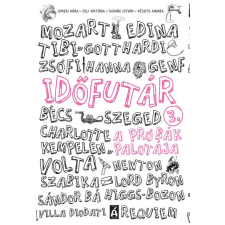 GIMESI DÓRA • JELI VIKTÓRIA • TASNÁDI ISTVÁN • VÉSSEY ANDREA
MOZART EDINA
TIBI GOTTHARDI
ZSÓFI HANNA GENF
IDŐFUTÁR
BÉCS SZEGED 3.
CHARLOTTE A PRÓBÁK
KEMPELEN PALOTÁJA
VOLTA NEWTON
SZABIKA LORD BYRON
SÁNDOR BÁ HIGGS-BOZON
VILLA DIODATI A REQUIEM